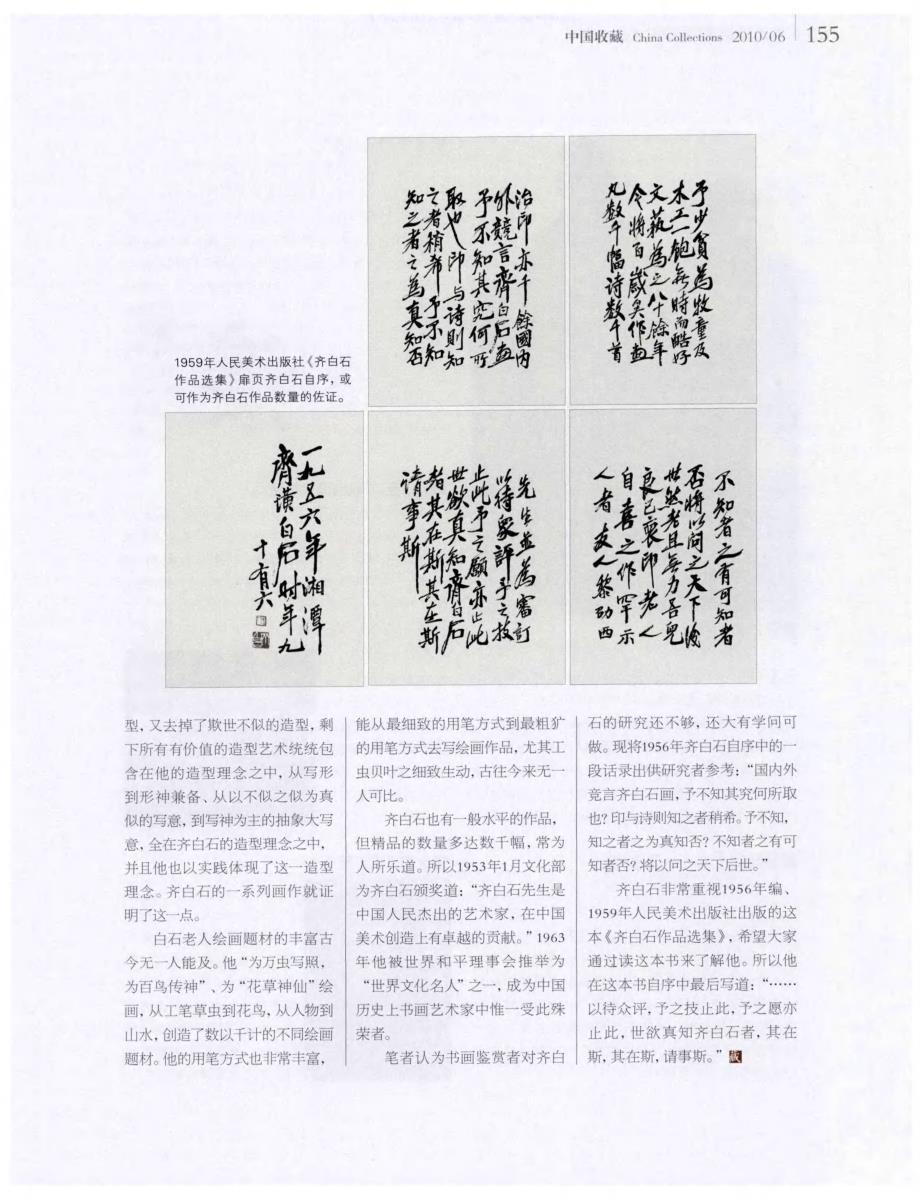 中国收藏 China Collections 2010/06 155
予少貧為牧童及
木工一飽無時而酷好
文藝為之八十餘年
今將百歲矣作畫
凡數千幅詩數千首
治印亦千餘國內
外競言齊白石畫
予不知其究何所
取也印與詩則知
之者稍希予不知
知之者之為真知否
1959年人民美术出版社《齐白石
作品选集》扉页齐白石自序，或
可作为齐白石作品数量的佐证。
不知者之有可知者
否將以問之天下後
世然老且無力吾兒
良已裒印老人
自喜之作罕示
人者友人黎劭西
先生並為審訂
以待眾評予之技
止此予之願亦止此
世欲真知齊白石
者其在斯其在斯
請事斯
一九五六年湘潭
齊璜白石时年九
十有六
型，又去掉了欺世不似的造型，剩
下所有有价值的造型艺术统统包
含在他的造型理念之中，从写形
到形神兼备、从以不似之似为真
似的写意，到写神为主的抽象大写
意，全在齐白石的造型理念之中，
并且他也以实践体现了这一造型
理念。齐白石的一系列画作就证
明了这一点。
白石老人绘画题材的丰富古
今无一人能及。他“为万虫写照，
为百鸟传神”、为“花草神仙”绘
画，从工笔草虫到花鸟，从人物到
山水，创造了数以千计的不同绘画
题材。他的用笔方式也非常丰富，
能从最细致的用笔方式到最粗犷
的用笔方式去写绘画作品，尤其工
虫贝叶之细致生动，古往今来无一
人可比。
齐白石也有一般水平的作品，
但精品的数量多达数千幅，常为
人所乐道。所以1953年1月文化部
为齐白石颁奖道：“齐白石先生是
中国人民杰出的艺术家，在中国
美术创造上有卓越的贡献。”1963
年他被世界和平理事会推举为
“世界文化名人”之一，成为中国
历史上书画艺术家中惟一受此殊
荣者。
笔者认为书画鉴赏者对齐白
石的研究还不够，还大有学问可
做。现将1956年齐白石自序中的一
段话录出供研究者参考：“国内外
竞言齐白石画，予不知其究何所取
也？印与诗则知之者稍希。予不知，
知之者之为真知否？不知者之有可
知者否？将以问之天下后世。”
齐白石非常重视1956年编、
1959年人民美术出版社出版的这
本《齐白石作品选集》，希望大家
通过读这本书来了解他。所以他
在这本书自序中最后写道：“……
以待众评，予之技止此，予之愿亦
止此，世欲真知齐白石者，其在
斯，其在斯，请事斯。”藏